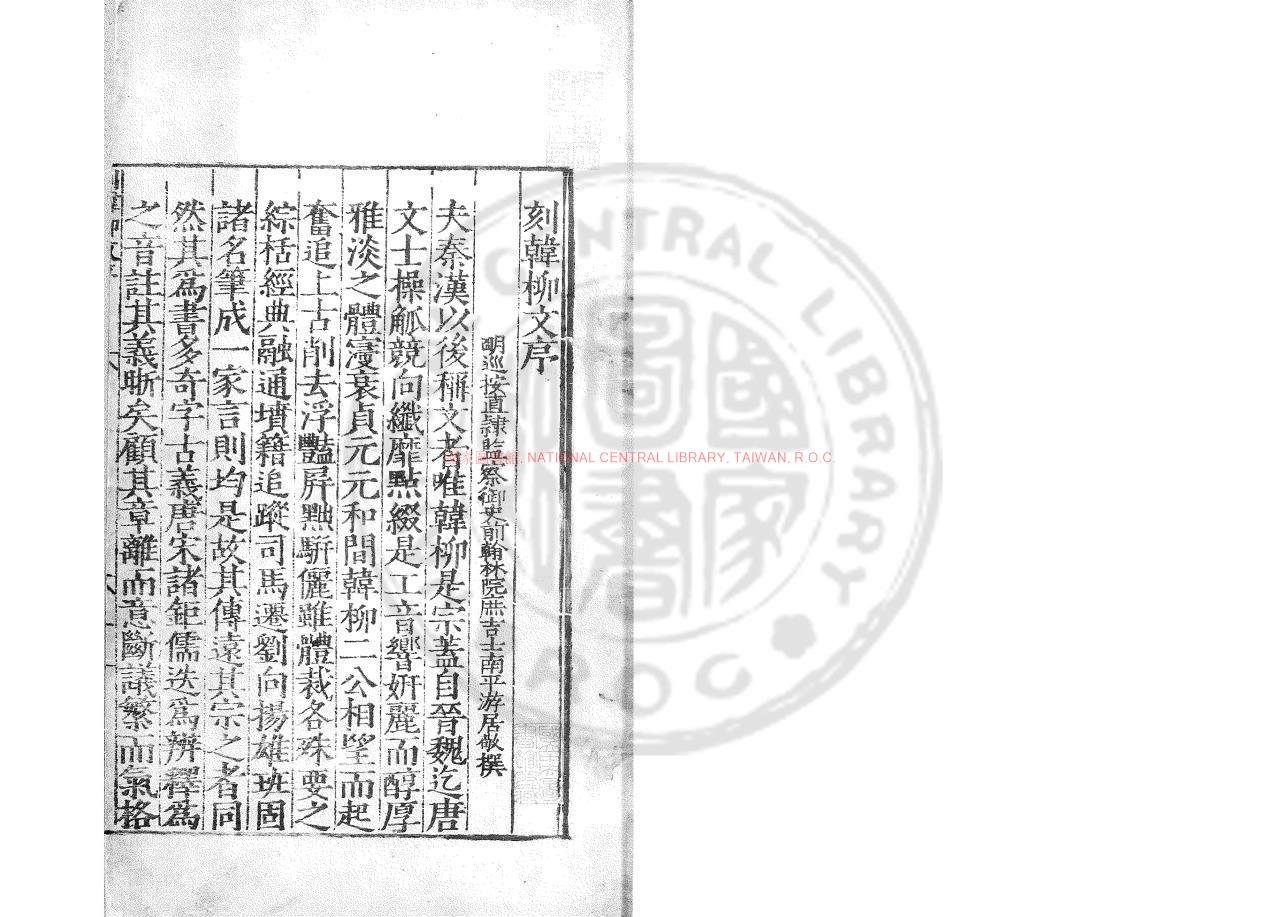 刻韓柳文序
明巡按直隷監察御史前翰林院庶吉士南平游居敬撰
夫秦漢以後稱文者唯韓柳是宗蓋自晉魏迄唐
文士操觚競向纖靡點綴是工音響妍麗而醇厚
雅淡之體寖衰貞元元和間韓柳二公相望而起
奮追上古削去浮豔屏黜駢儷雖體裁各殊要之
綜栝經典融通墳籍追蹤司馬遷劉向揚雄班固
諸名筆成一家言則均是故其傳遠其宗之者同
然其爲書多奇字古義唐宋諸鉅儒迭爲辨釋爲
之音註其義晣矣顧其章離而意斷議繁而氣格
國家圖書館, NATIONAL CENTRAL LIBRARY, TAIWAN, R.O.C.
CENTRAL LIBRARY
R O C